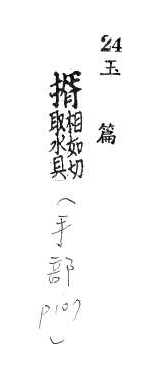 24玉篇
揟相如切
取水具
(手部P107)